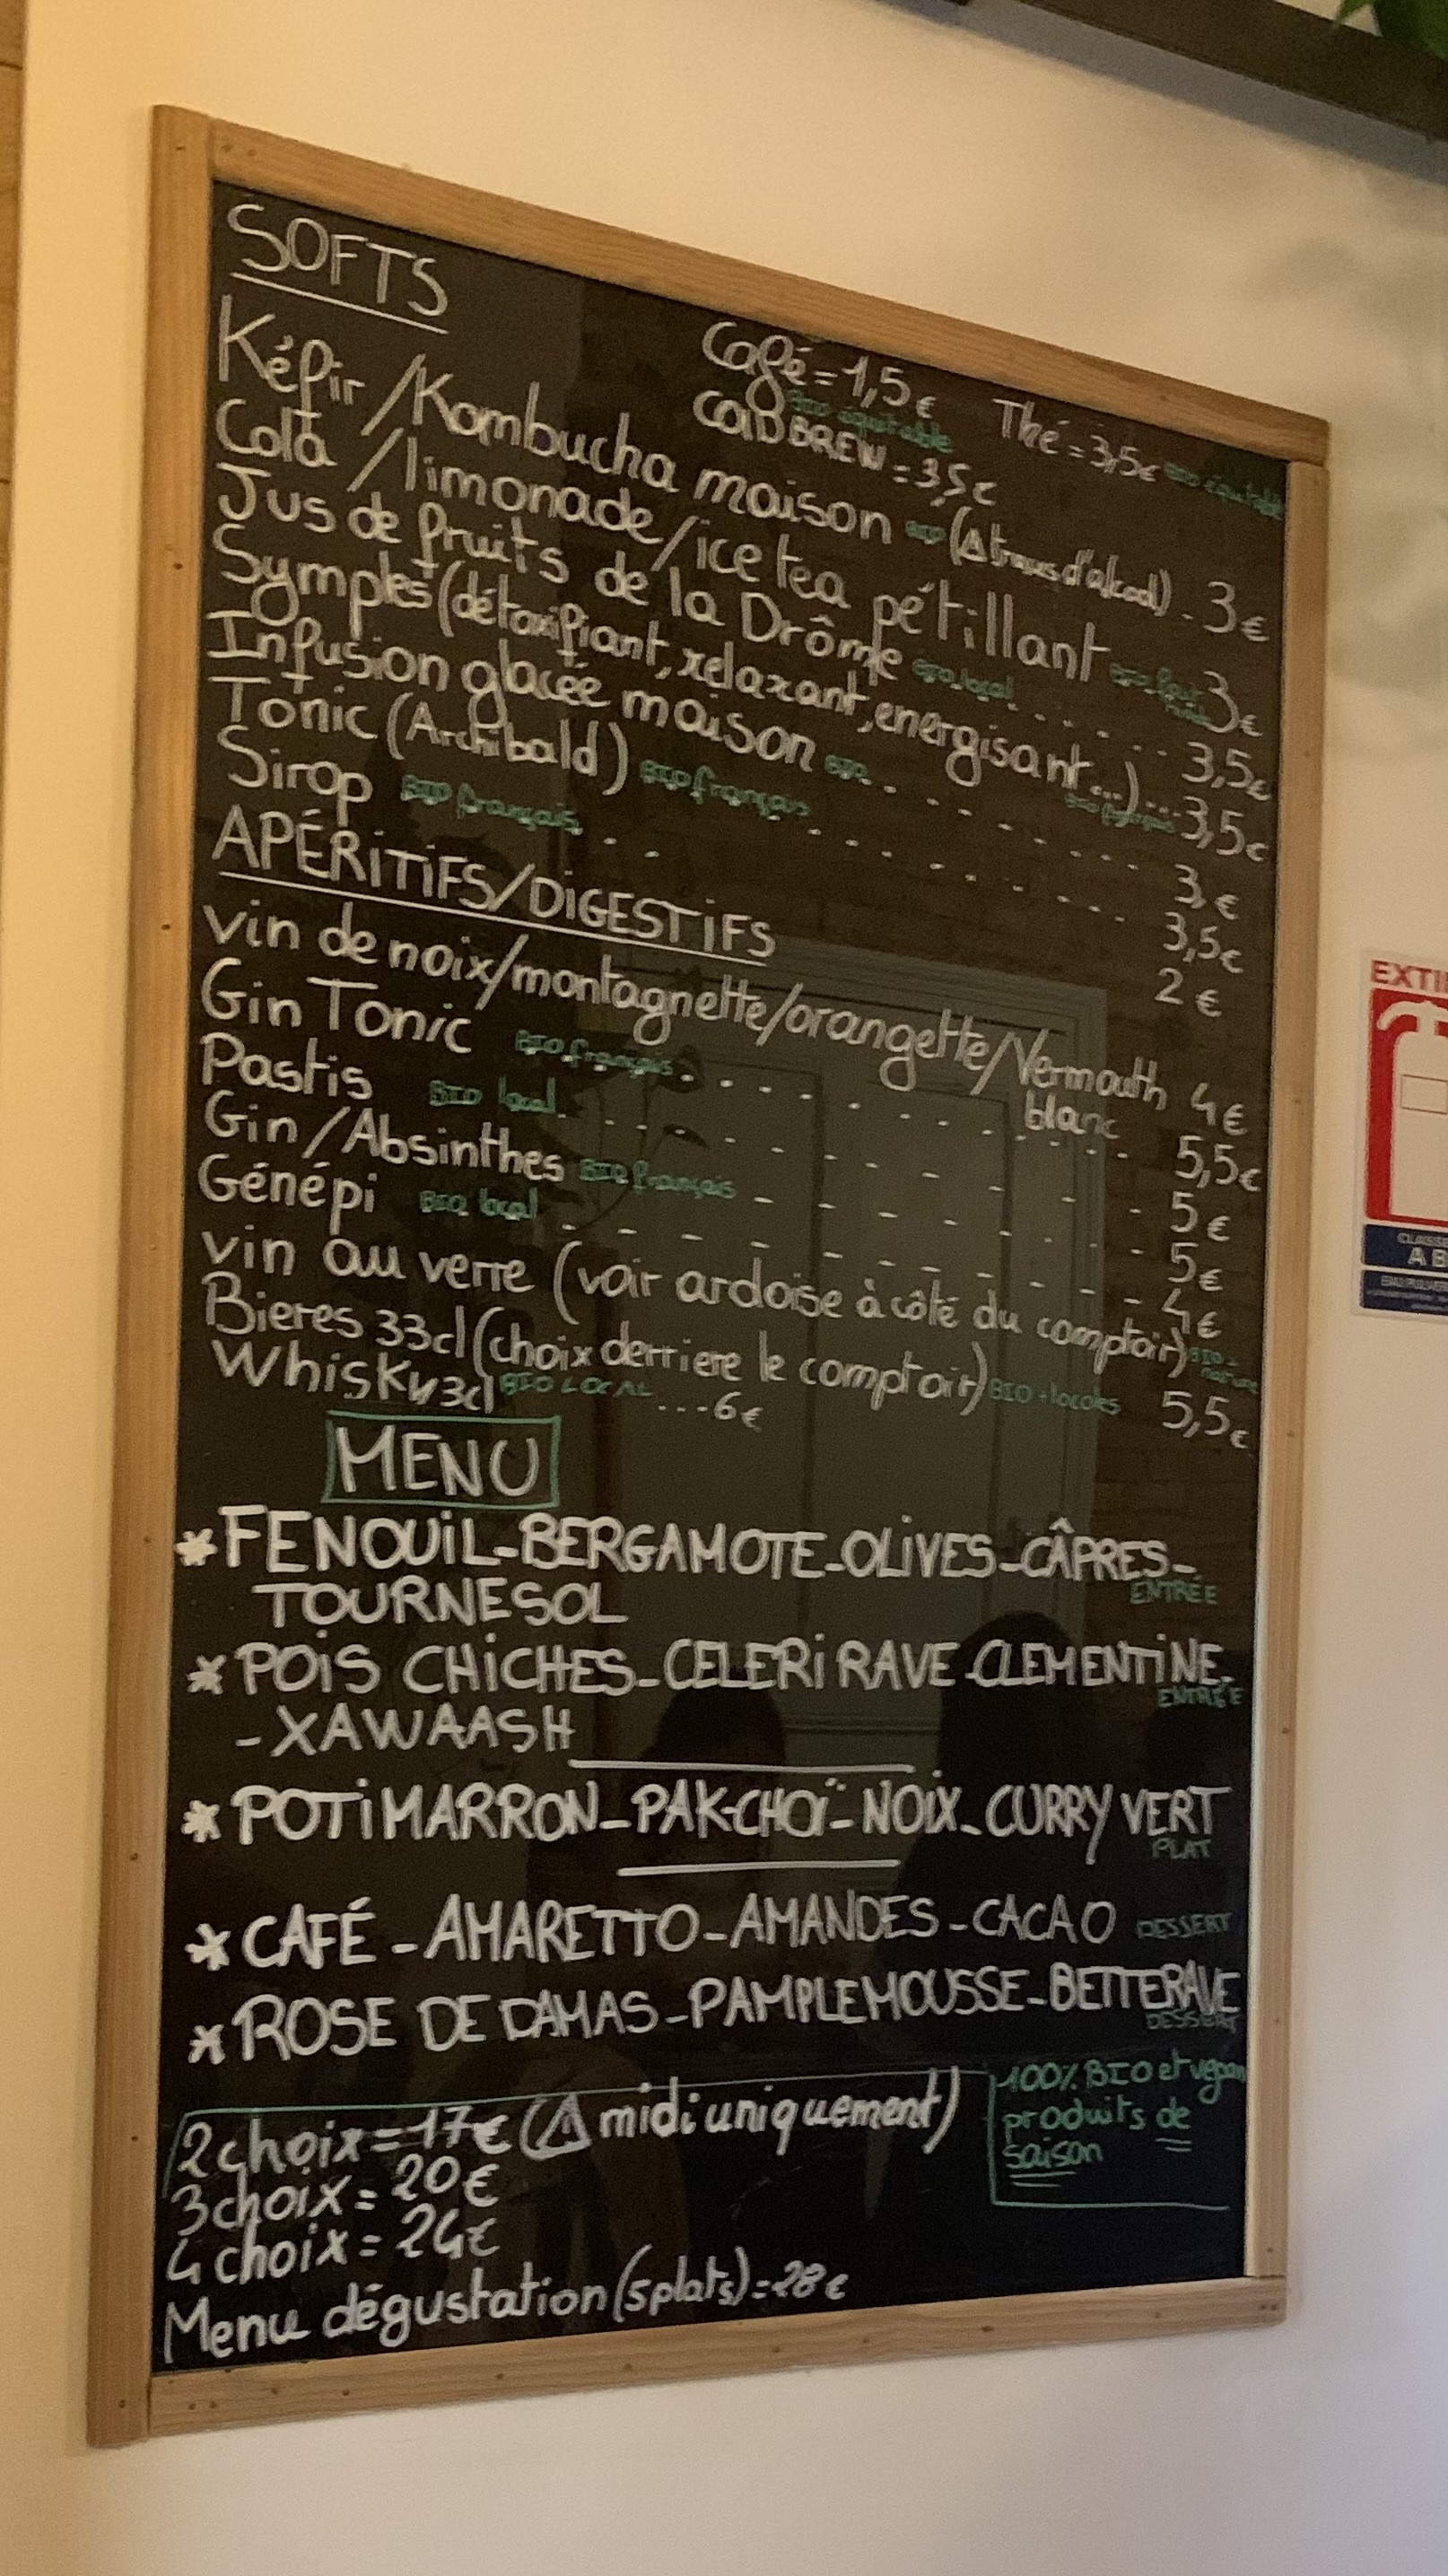 SOFTS
Café = 1,5€
BIO équitable
Thé = 3,5€ BIO équitable
COLD BREW = 3,5€
Képir / Kombucha maison BIO (⚠ traces d'alcool) . 3€
Cola / limonade / ice tea pétillant 3€
Jus de fruits de la Drôme BIO local . . . . . . 3,5€
Symples (détoxifiant, relaxant, energisant...) ... 3,5€
BIO français
Infusion glacée maison BIO . . . . . . . 3,€
Tonic (Archibald) BIO français . . . . . . . . 3,5€
Sirop BIO français . . 2€
APÉRITIFS/DIGESTIFS
vin de noix/montagnette/orangette/Vermouth blanc 4€
Gin Tonic BIO français . . . . . . . . . 5,5€
Pastis BIO local . . . . . . . . . 5€
Gin / Absinthes BIO français - - - - - - - 5€
Génépi BIO local - - - - - - - - - 4€
vin au verre (voir ardoise à côté du comptoir) BIO - nature
Bieres 33cl (choix derriere le comptoir) BIO - locales 5,5€
Whisky 3cl BIO LOCAL ...6€
MENU
* FENOUIL - BERGAMOTE - OLIVES - CÂPRES -
ENTRÉE
TOURNESOL
* POIS CHICHES - CELERI RAVE - CLEMENTINE -
ENTRÉE
- XAWAASH
* POTIMARRON - PAK-CHOÏ - NOIX - CURRY VERT
PLAT
* CAFÉ - AMARETTO - AMANDES - CACAO DESSERT
* ROSE DE DAMAS - PAMPLEMOUSSE - BETTERAVE
DESSERT
2 choix = 17€ (⚠ midi uniquement)
3 choix = 20€
4 choix = 24€
Menu dégustation (5 plats) = 28€
100% BIO et vegan
produits de
saison
EXTI
CLASSE
A B